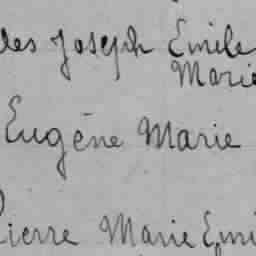 les Joseph Emile
Marie
Eugène Marie
Pierre Marie Emi